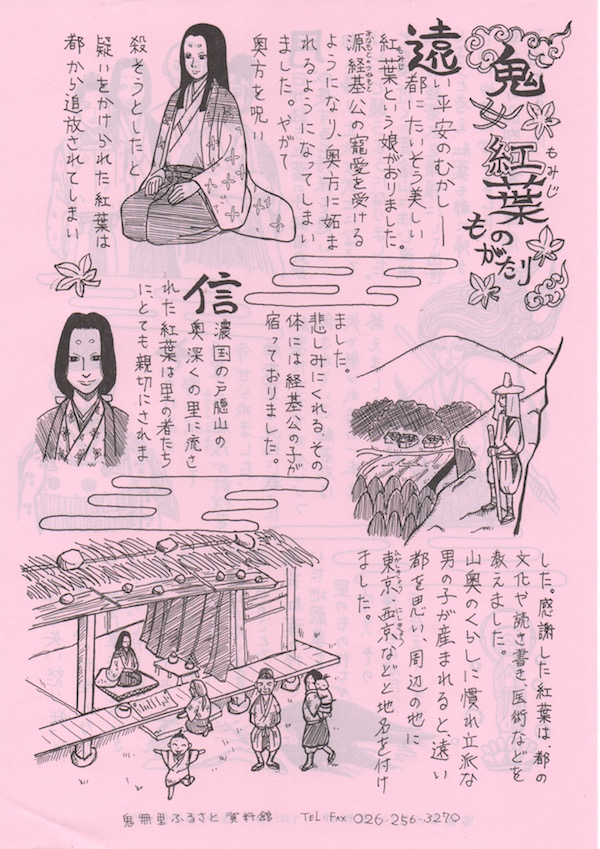 鬼女紅葉
もみじ
ものがたり
遠い平安のむかし――
都にたいそう美しい
紅葉という娘がおりました。
もみじ
源経基公の寵愛を受ける
みなもとのつねもと
ようになり、奥方に妬ま
れるようになってしまい
ました。やがて
奥方を呪い
殺そうとした、と
疑いをかけられた紅葉は
都から追放されてしまい
ました。
悲しみにくれる、その
体には経基公の子が
宿っておりました。
信濃国の戸隠山の
奥深くの里に流さ
れた紅葉は里の者たち
に、とても親切にされま
した。感謝した紅葉は、都の
文化や読き書き、医術などを
教えました。
山奥のくらしに慣れ立派な
男の子が産まれると、遠い
都を思い、周辺の地に
東京・西京などと地名を付け
ひがしきょう にしきょう
ました。
鬼無里ふるさと資料館 TEL・FAX 026-256-3270